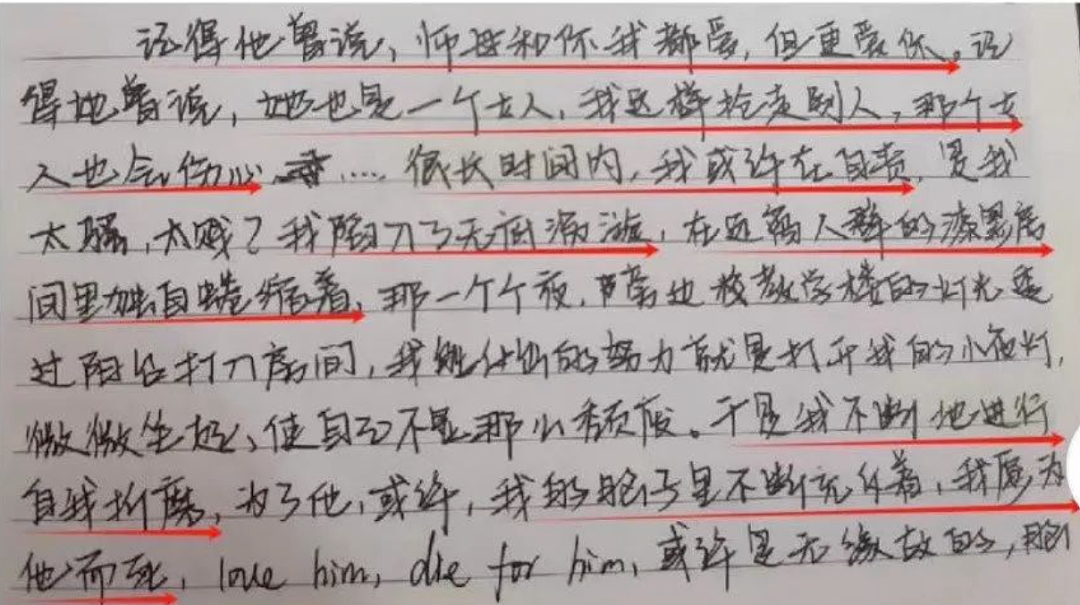 记得他曾说，师母和你我都爱，但更爱你。记
得她曾说，她也是一个女人，我这样抢走别人，那个女
人也会伤心 …… 很长时间内，我或许在自责，是我
太骚，太贱？我陷入了无底漩涡，在远离人群的漆黑房
间里独自蜷缩着，那一个个夜，隔着校教学楼的灯光透
过阳台打入房间，我能付出的努力就是打开我的小夜灯，
微微坐起，使自己不显那么颓废。于是我不断地进行
自我折磨，为了他，或许，我的脑子里不断充斥着，我愿为
他而死，love him, die for him, 或许是无缘故的，脑